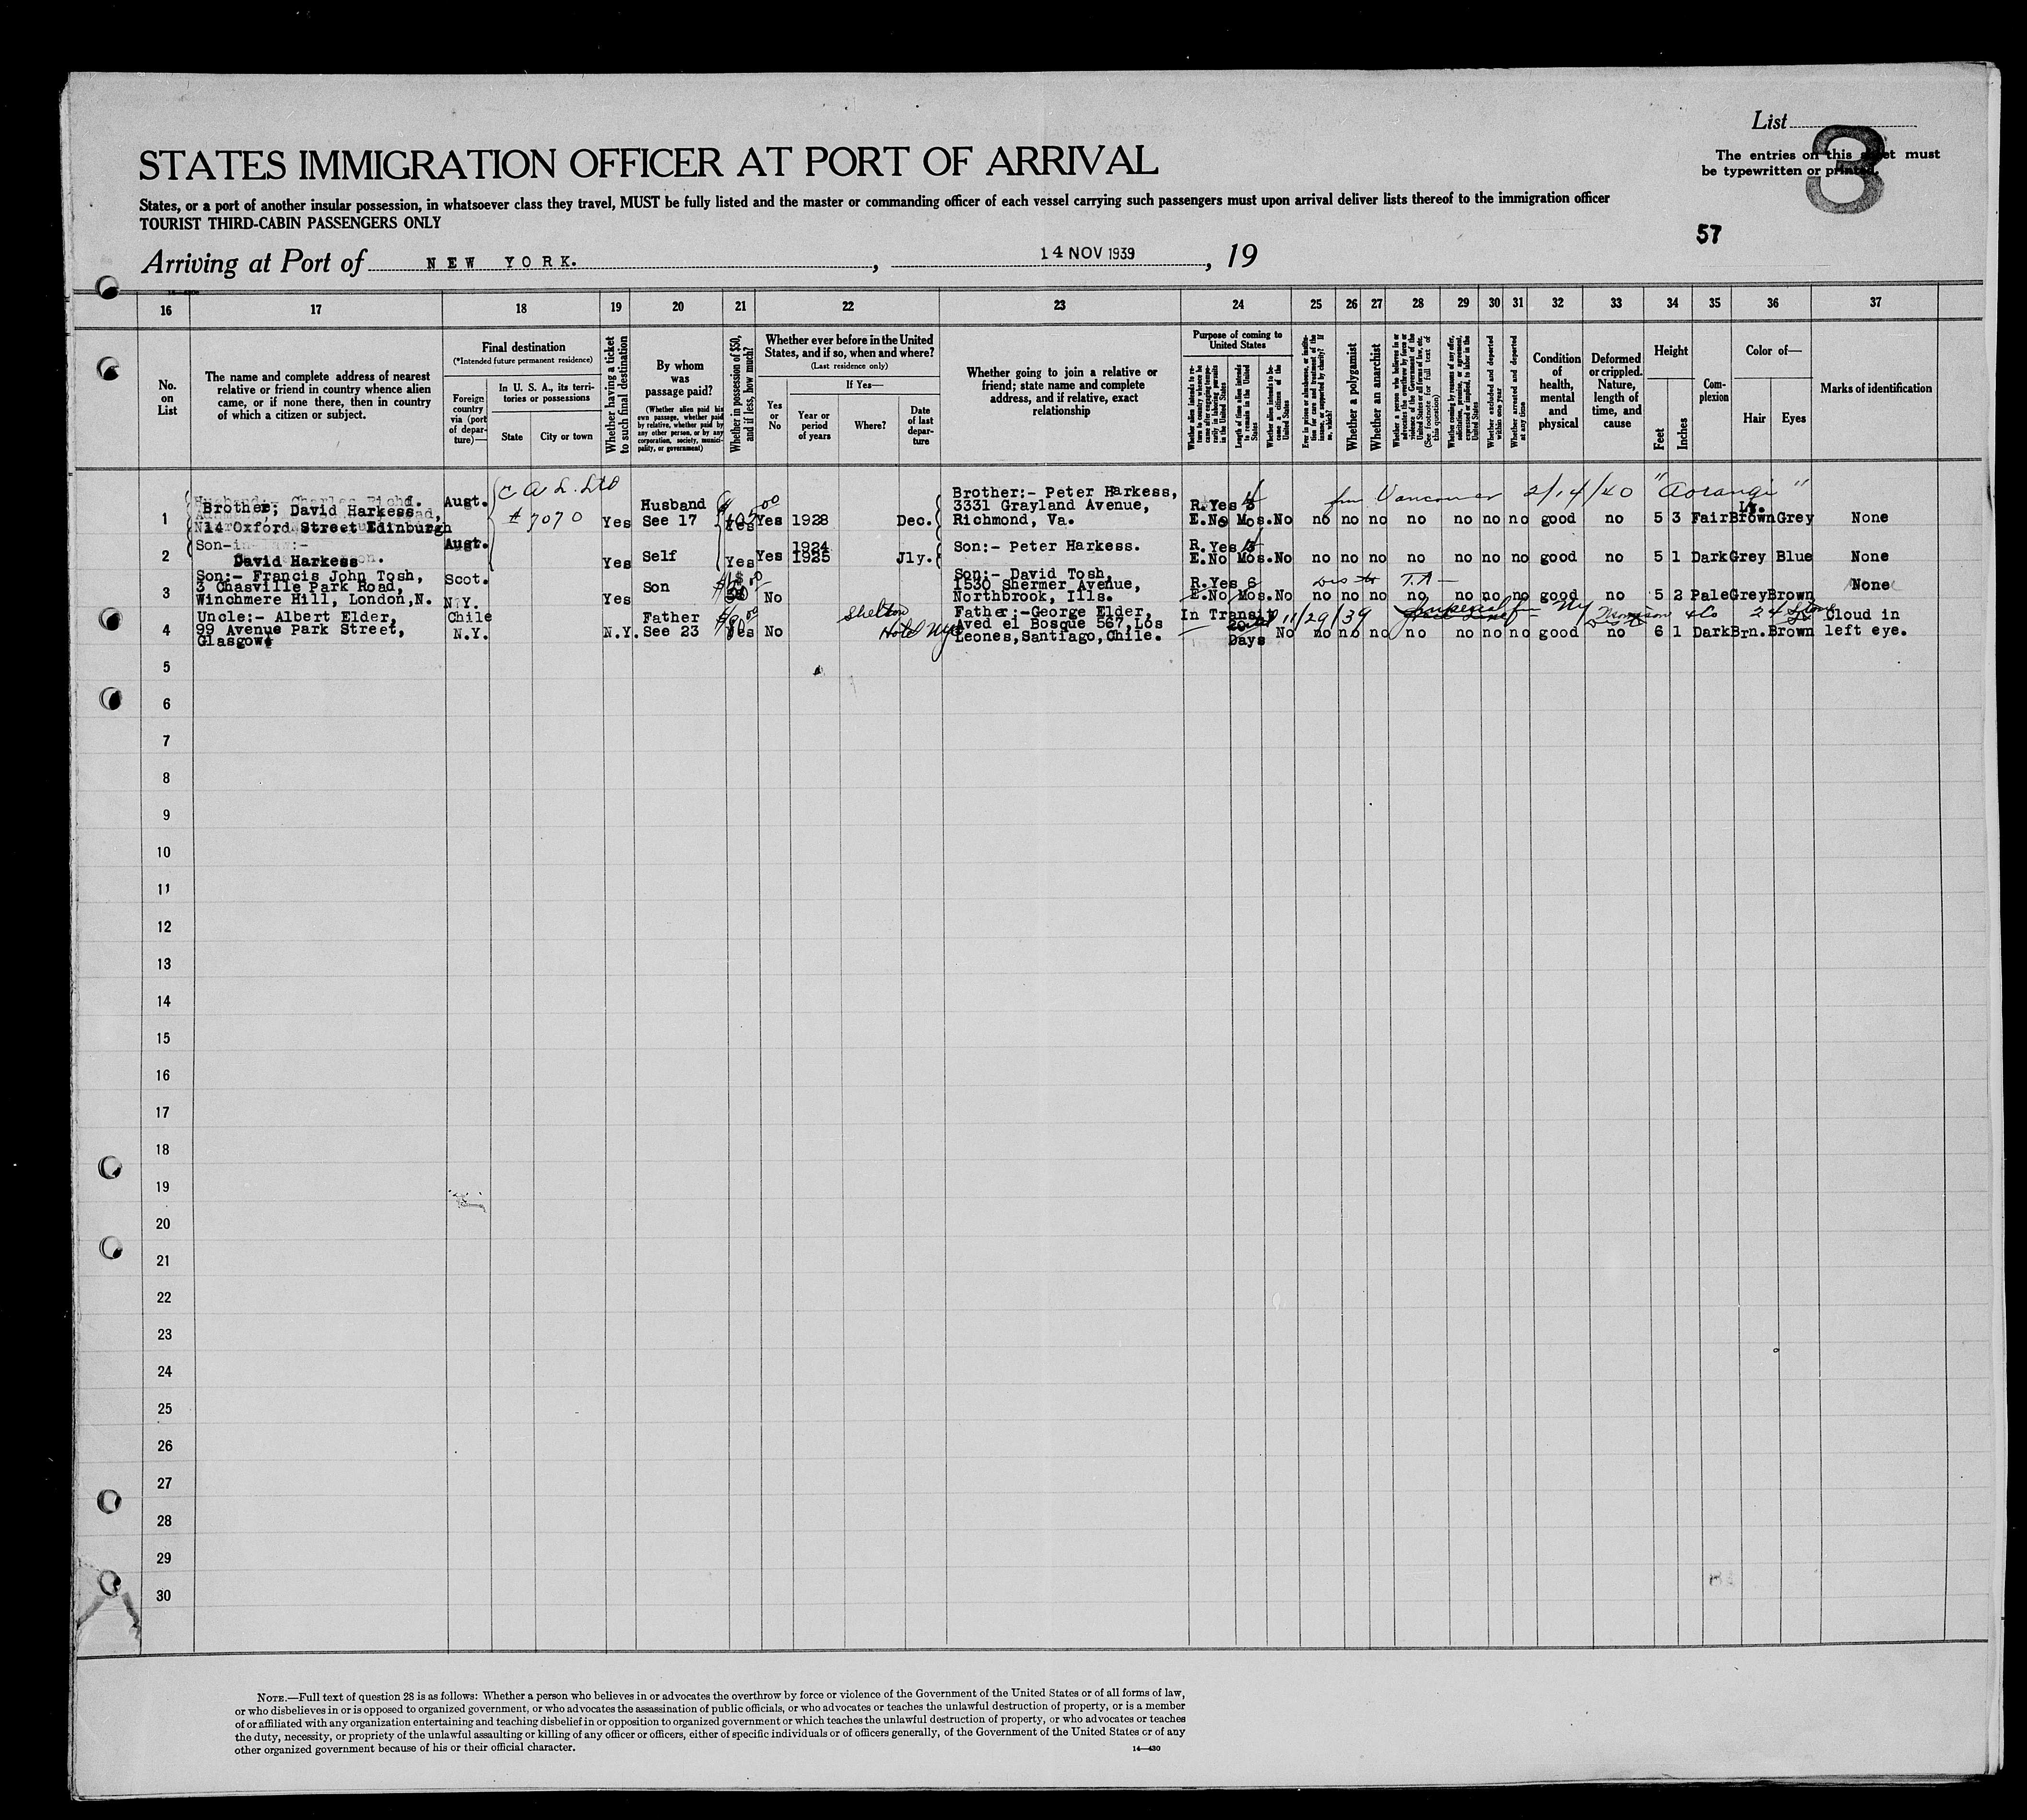 List
3
The entries on this sheet must
be typewritten or printed.
STATES IMMIGRATION OFFICER AT PORT OF ARRIVAL
States, or a port of another insular possession, in whatsoever class they travel, MUST be fully listed and the master or commanding officer of each vessel carrying such passengers must upon arrival deliver lists thereof to the immigration officer
TOURIST THIRD-CABIN PASSENGERS ONLY
57
Arriving at Port of NEW YORK. , 14 NOV 1939 , 19
16 17 18 19 20 21 22 23 24 25 26 27 28 29 30 31 32 33 34 35 36 37
No. on List
The name and complete address of nearest relative or friend in country whence alien came, or if none there, then in country of which a citizen or subject.
Final destination
(*Intended future permanent residence)
Foreign country via (port of departure)—
In U. S. A., its territories or possessions
State
City or town
Whether having a ticket to such final destination
By whom was passage paid?
(Whether alien paid his own passage, whether paid by relative, whether paid by any other person, or by any corporation, society, municipality, or government)
Whether in possession of $50, and if less, how much?
Whether ever before in the United States, and if so, when and where?
(Last residence only)
Yes or No
If Yes—
Year or period of years
Where?
Date of last departure
Whether going to join a relative or friend; state name and complete address, and if relative, exact relationship
Purpose of coming to United States
Length of time alien intends to remain in the United States
Whether alien intends to become a citizen of the United States
Whether a polygamist
Whether an anarchist
Whether excluded and deported within one year
Whether arrested and deported at any time
Condition of health, mental and physical
Deformed or crippled. Nature, length of time, and cause
Height
Feet
Inches
Complexion
Color of—
Hair
Eyes
Marks of identification
C A L. Ltd
# 7070
from Vancouver 2/14/40 "Aorangi"
1 Brother; David Harkess, Aust. Yes Husband Yes 1928 Dec. Brother:- Peter Harkess, R.Yes
14 Oxford Street Edinburgh See 17 Yes 3331 Grayland Avenue, E.No Mos. No no no no no no no no good no 5 3 Fair Lt. Brown Grey None
Richmond, Va.
2 Son-in- Aust. Yes Self Yes Yes 1924 Jly. Son:- Peter Harkess. R.Yes
David Harkess 1925 E.No Mos. No no no no no no no no good no 5 1 Dark Grey Blue None
3 Son:- Francis John Tosh, Scot. Yes Son No Son:- David Tosh, R.Yes 6
3 Chasville Park Road, N.Y. 1530 Shermer Avenue, E.No Mos. No no no no no no no no good no 5 2 Pale Grey Brown None
Winchmere Hill, London,N. Northbrook, Ills.
4 Uncle:- Albert Elder, Chile N.Y. Father Yes No Shelton Father:-George Elder, In Transit 11/29/39
99 Avenue Park Street, N.Y. See 23 Hotel NYC Aved el Bosque 567,Los Days No no no no no no no no good no 6 1 Dark Brn. Brown Cloud in
Glasgow. Leones,Santiago,Chile. left eye.
5
6
7
8
9
10
11
12
13
14
15
16
17
18
19
20
21
22
23
24
25
26
27
28
29
30
NOTE.—Full text of question 28 is as follows: Whether a person who believes in or advocates the overthrow by force or violence of the Government of the United States or of all forms of law,
or who disbelieves in or is opposed to organized government, or who advocates the assassination of public officials, or who advocates or teaches the unlawful destruction of property, or is a member
of or affiliated with any organization entertaining and teaching disbelief in or opposition to organized government or which teaches the unlawful destruction of property, or who advocates or teaches
the duty, necessity, or propriety of the unlawful assaulting or killing of any officer or officers, either of specific individuals or of officers generally, of the Government of the United States or of any
other organized government because of his or their official character.
14—430